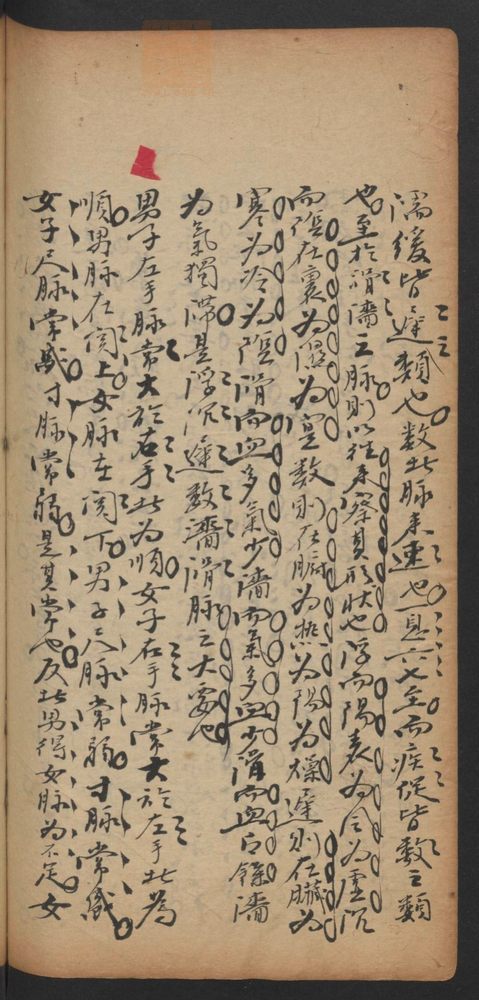 濡緩皆遲類也数此脉来速也一息六七至而疾促皆数之類
也至於滑濇之脉則以往来察其形状也浮而陽表為風為虛沉
而陰在裏為濕為實数則在腑為热為陽為燥遲則在臟為
寒為冷為陰滑而血多氣少濇而氣多血少滑而血有餘濇
為氣獨滯是浮沉遲数濇滑脉之大要也
男子左手脉常大於右手此為順女子右手脉常大於左手此為
順男脉在関上女脉在関下男子尺脉常弱寸脉常盛
女子尺脉常盛寸脉常弱是其常也反此男得女脉為不足女